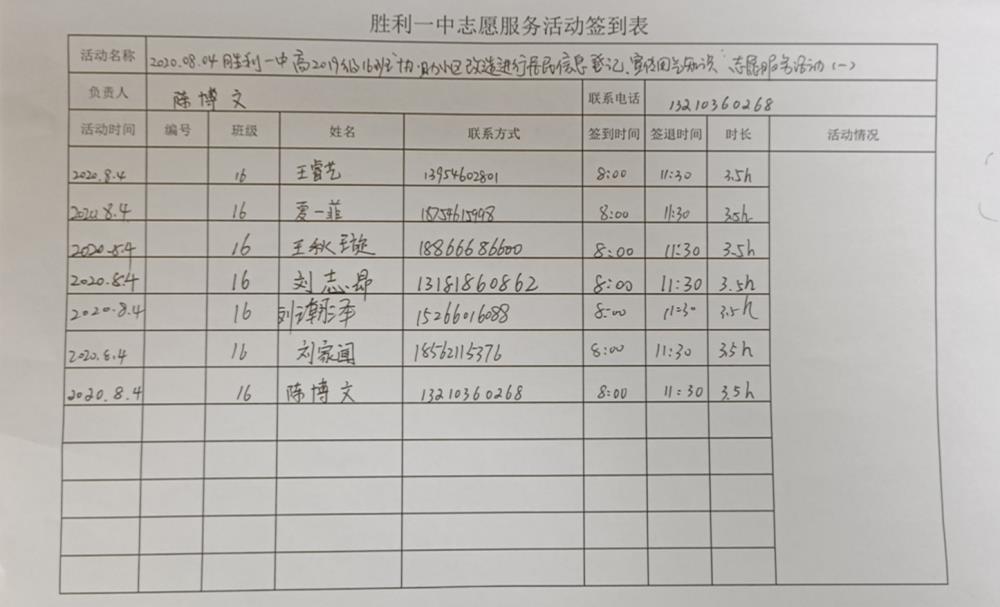 胜利一中志愿服务活动签到表
活动名称 2020.08.04胜利一中高2019级16班 协助小区改造进行居民信息登记、宣传用气知识 志愿服务活动(一)
负责人 陈博文 联系电话 13210360268
活动时间 编号 班级 姓名 联系方式 签到时间 签退时间 时长 活动情况
2020.8.4 16 王睿艺 13954602801 8:00 11:30 3.5h
2020.8.4 16 夏一菲 18754615998 8:00 11:30 3.5h
2020.8.4 16 王秋璇 18866686600 8:00 11:30 3.5h
2020.8.4 16 刘志昂 13181860862 8:00 11:30 3.5h
2020.8.4 16 刘瀚泽 15266016088 8:00 11:30 3.5h
2020.8.4 16 刘家闻 18562115376 8:00 11:30 3.5h
2020.8.4 16 陈博文 13210360268 8:00 11:30 3.5h